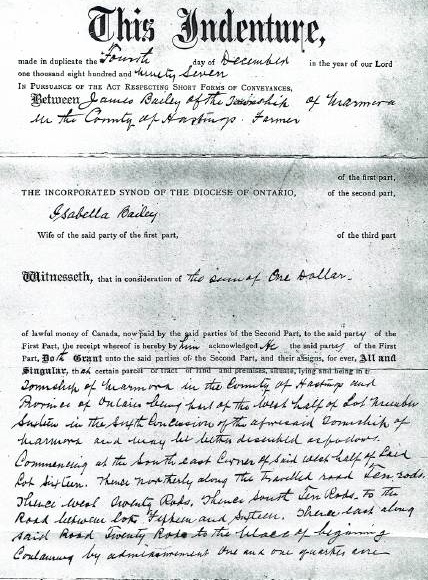 This Indenture,
made in duplicate the Fourth day of December in the year of our Lord
one thousand eight hundred and ninety seven
IN PURSUANCE OF THE ACT RESPECTING SHORT FORMS OF CONVEYANCES,
Between James Bailey of the Township of Marmora
in the County of Hastings. Farmer
of the first part,
THE INCORPORATED SYNOD OF THE DIOCESE OF ONTARIO, of the second part,
Isabella Bailey
Wife of the said party of the first part, of the third part
Witnesseth, that in consideration of the sum of One Dollar
of lawful money of Canada, now paid by the said parties of the Second Part, to the said party of the
First Part, the receipt whereof is hereby by him acknowledged He the said party of the First
Part, Doth Grant unto the said parties of the Second Part, and their assigns, for ever, All and
Singular, that certain parcel or tract of land and premises, situate, lying and being in the
Township of Marmora in the County of Hastings and
Province of Ontario being part of the West half of Lot Number
Sixteen in the Sixth Concession of the aforesaid Township of
Marmora and may be better described as follows.
Commencing at the South east Corner of Said West half of Said
Lot Sixteen. Thence Northerly along the travelled road Ten rods.
Thence West Twenty Rods. Thence South Ten Rods. to the
Road between Lots Fifteen and Sixteen. Thence East along
said Road Twenty Rods to the place of begining
Containing by admeasurement One and one quarter acre